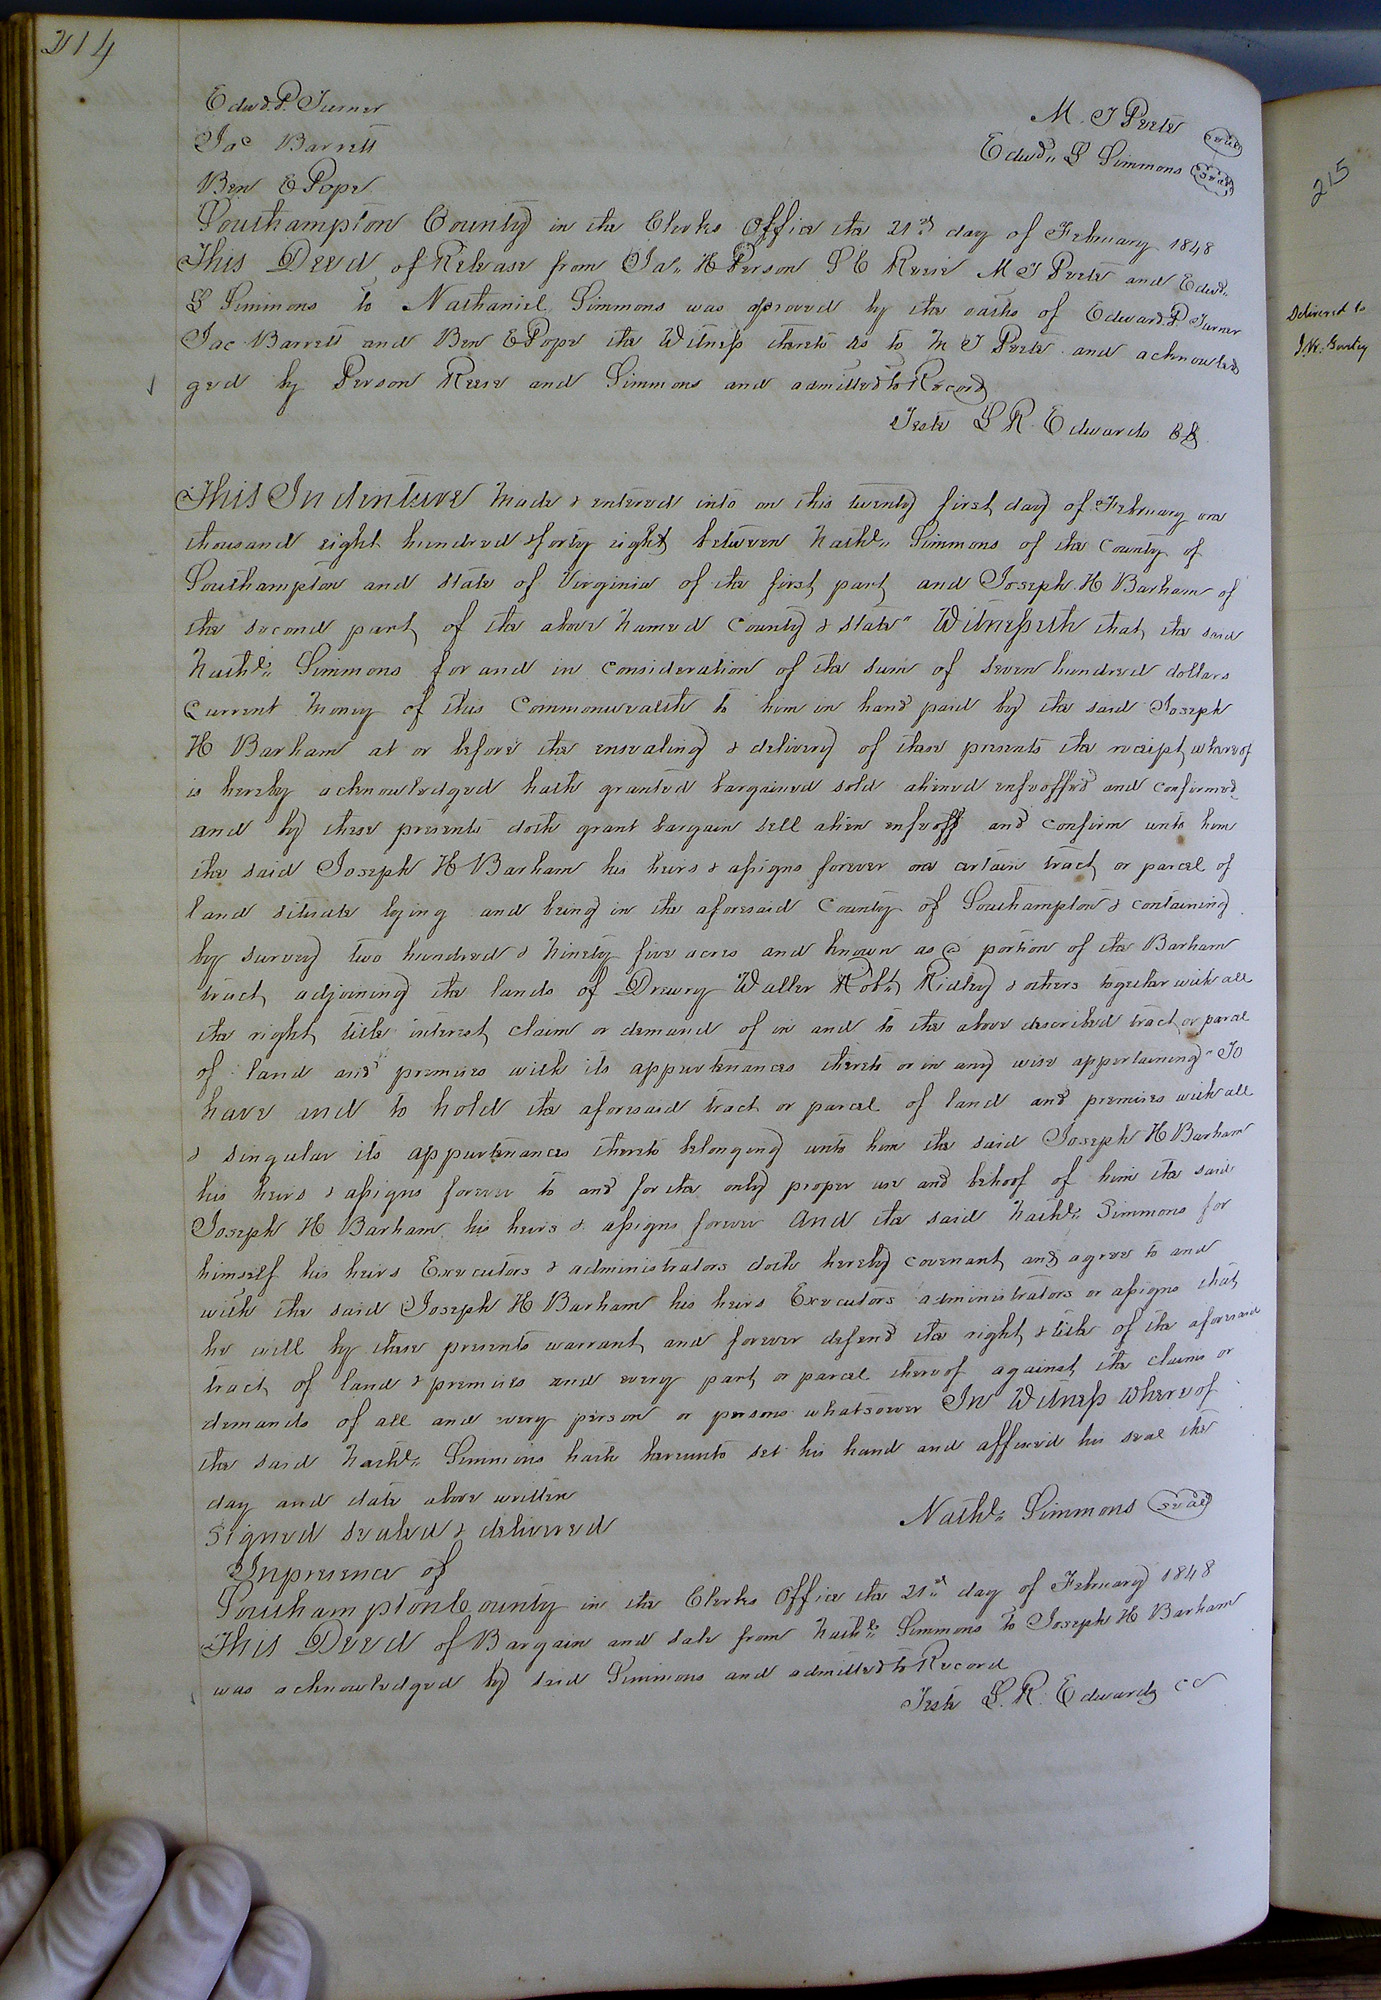 214
Edwd. P. Turner
M. T Peete seal
Jac Barrett
Edwd. L Simmons seal
Ben E Pope
Southampton County in the Clerks Office the 21st day of February 1848
This Deed of Release from Ja.. H Person S C Reese M T Peete and Edwd..
L Simmons to Nathaniel Simmons was proved by the oaths of Edward P Turner
Jac Barrett and Ben E Pope the Witness thereto as to M T Peete and acknowled
ged by Person Reese and Simmons and admitted to Record
Teste L R Edwards CC
This Indenture Made & entered into on this twenty first day of February one
thousand eight hundred & forty eight between Nathl.. Simmons of the County of
Southampton and state of Virginia of the first part and Joseph H Barham of
the second part of the above Named County & State" Witnesseth that the said
Nathl.. Simmons for and in consideration of the sum of seven hundred dollars
Current Money of this Commonwealth to him in hand paid by the said Joseph
H Barham at or before the ensealing & delivery of these presents the receipt whereof
is hereby acknowledged hath granted bargained sold aliened enfeoffed and confirmed
and by these presents doth grant bargain sell alien enfeoff and confirm unto him
the said Joseph H Barham his heirs & assigns forever one certain tract or parcel of
land situate lying and being in the aforesaid County of Southampton & containing
by survey two hundred & Ninety five acres and known as a portion of the Barham
tract adjoining the lands of Drewry Waller Robt. Ridley & others together with all
the right title interest claim or demand of in and to the above described tract or parcel
of land and premises with its appurtenances thereto or in any wise appertaining" To
have and to hold the aforesaid tract or parcel of land and premises with all
& singular its appurtenances thereto belonging unto him the said Joseph H Barham
his heirs & assigns forever to and for the only proper use and behoof of him the said
Joseph H Barham his heirs & assigns forever And the said Nathl.. Simmons for
himself his heirs Executors & administrators doth hereby covenant and agree to and
with the said Joseph H Barham his heirs Executors administrators or assigns that
he will by these presents warrant and forever defend the right & title of the aforesaid
tract of land & premises and every part or parcel thereof against the claims or
demands of all and every person or persons whatsoever In Witness whereof
the said Nathl.. Simmons hath hereunto set his hand and affixed his seal the
day and date above written
Signed sealed & delivered
Nathl.. Simmons seal
In presence of
Southampton County in the Clerks Office the 21st day of February 1848
This Deed of Bargain and sale from Nathl.. Simmons to Joseph H Barham
was acknowledged by said Simmons and admitted to Record
Teste L. R. Edwards CC
215
Delivered to